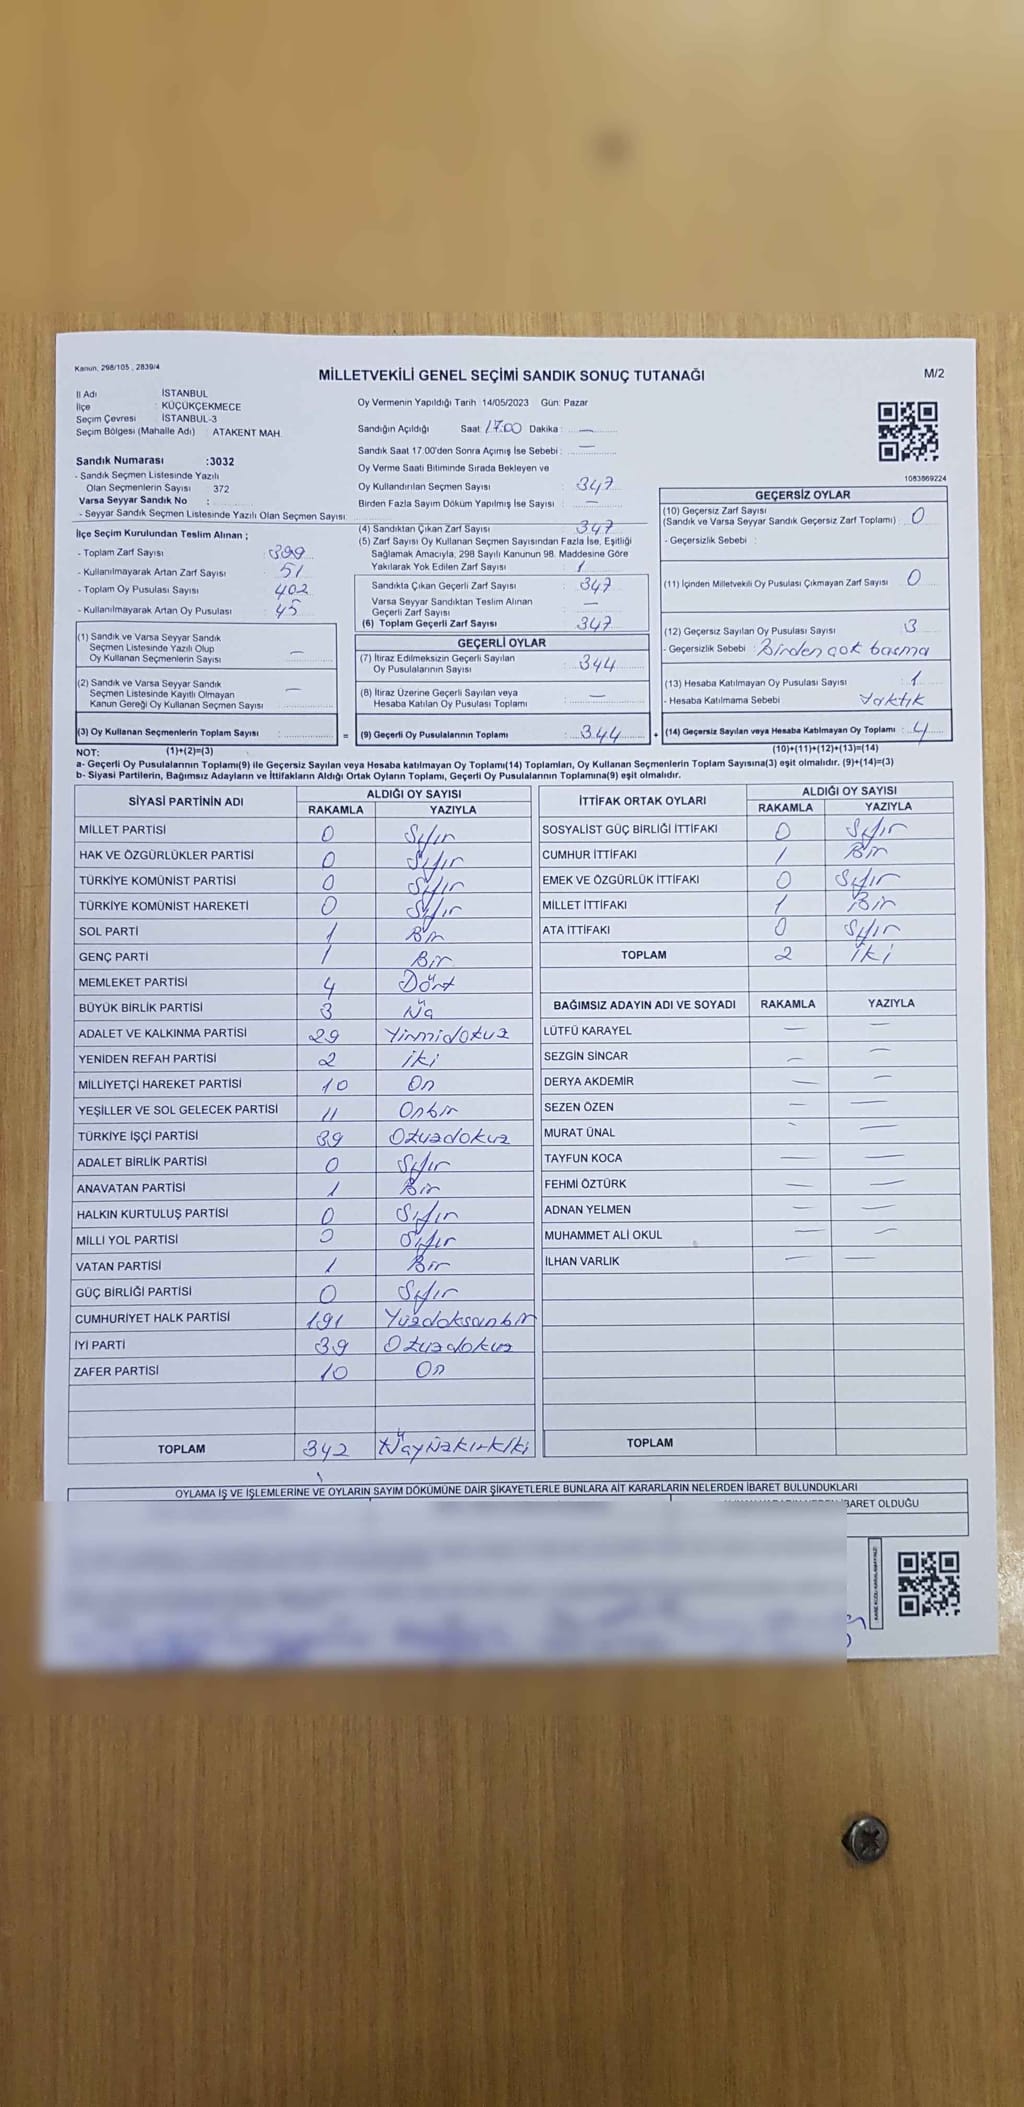 Kanun, 298/105 , 2839/4
MİLLETVEKİLİ GENEL SEÇİMİ SANDIK SONUÇ TUTANAĞI
M/2
İl Adı İSTANBUL
İlçe : KÜÇÜKÇEKMECE
Seçim Çevresi : İSTANBUL-3
Seçim Bölgesi (Mahalle Adı) : ATAKENT MAH.
Sandık Numarası :3032
- Sandık Seçmen Listesinde Yazılı
Olan Seçmenlerin Sayısı 372
Varsa Seyyar Sandık No :
- Seyyar Sandık Seçmen Listesinde Yazılı Olan Seçmen Sayısı:
İlçe Seçim Kurulundan Teslim Alınan ;
- Toplam Zarf Sayısı : 399
- Kullanılmayarak Artan Zarf Sayısı : 51
- Toplam Oy Pusulası Sayısı : 402
- Kullanılmayarak Artan Oy Pusulası : 45
(1) Sandık ve Varsa Seyyar Sandık
Seçmen Listesinde Yazılı Olup
Oy Kullanan Seçmenlerin Sayısı : —
(2) Sandık ve Varsa Seyyar Sandık
Seçmen Listesinde Kayıtlı Olmayan
Kanun Gereği Oy Kullanan Seçmen Sayısı : —
(3) Oy Kullanan Seçmenlerin Toplam Sayısı :
Oy Vermenin Yapıldığı Tarih 14/05/2023 Gün: Pazar
Sandığın Açıldığı Saat: 17.00 Dakika : —
Sandık Saat 17.00'den Sonra Açımış İse Sebebi : —
Oy Verme Saati Bitiminde Sırada Bekleyen ve
Oy Kullandırılan Seçmen Sayısı : 347
Birden Fazla Sayım Döküm Yapılmış İse Sayısı : —
(4) Sandıktan Çıkan Zarf Sayısı : 347
(5) Zarf Sayısı Oy Kullanan Seçmen Sayısından Fazla İse, Eşitliği
Sağlamak Amacıyla, 298 Sayılı Kanunun 98. Maddesine Göre
Yakılarak Yok Edilen Zarf Sayısı : 1
Sandıkta Çıkan Geçerli Zarf Sayısı : 347
Varsa Seyyar Sandıktan Teslim Alınan
Geçerli Zarf Sayısı : —
(6) Toplam Geçerli Zarf Sayısı : 347
GEÇERLİ OYLAR
(7) İtiraz Edilmeksizin Geçerli Sayılan
Oy Pusulalarının Sayısı : 344
(8) İtiraz Üzerine Geçerli Sayılan veya
Hesaba Katılan Oy Pusulası Toplamı : —
= (9) Geçerli Oy Pusulalarının Toplamı : 344 +
1083869224
GEÇERSİZ OYLAR
(10) Geçersiz Zarf Sayısı
(Sandık ve Varsa Seyyar Sandık Geçersiz Zarf Toplamı) : 0
- Geçersizlik Sebebi :
(11) İçinden Milletvekili Oy Pusulası Çıkmayan Zarf Sayısı : 0
(12) Geçersiz Sayılan Oy Pusulası Sayısı : 3
- Geçersizlik Sebebi : Birden çok basma
(13) Hesaba Katılmayan Oy Pusulası Sayısı : 1
- Hesaba Katılmama Sebebi : Yaktık
(14) Geçersiz Sayılan veya Hesaba Katılmayan Oy Toplamı : 4
NOT: (1)+(2)=(3) (10)+(11)+(12)+(13)=(14)
a- Geçerli Oy Pusulalarının Toplamı(9) ile Geçersiz Sayılan veya Hesaba katılmayan Oy Toplamı(14) Toplamları, Oy Kullanan Seçmenlerin Toplam Sayısına(3) eşit olmalıdır. (9)+(14)=(3)
b- Siyasi Partilerin, Bağımsız Adayların ve İttifakların Aldığı Ortak Oyların Toplamı, Geçerli Oy Pusulalarının Toplamına(9) eşit olmalıdır.
SİYASİ PARTİNİN ADI ALDIĞI OY SAYISI
RAKAMLA YAZIYLA
MİLLET PARTİSİ 0 Sıfır
HAK VE ÖZGÜRLÜKLER PARTİSİ 0 Sıfır
TÜRKİYE KOMÜNİST PARTİSİ 0 Sıfır
TÜRKİYE KOMÜNİST HAREKETİ 0 Sıfır
SOL PARTİ 1 Bir
GENÇ PARTİ 1 Bir
MEMLEKET PARTİSİ 4 Dört
BÜYÜK BİRLİK PARTİSİ 3 Üç
ADALET VE KALKINMA PARTİSİ 29 Yirmidokuz
YENİDEN REFAH PARTİSİ 2 iki
MİLLİYETÇİ HAREKET PARTİSİ 10 On
YEŞİLLER VE SOL GELECEK PARTİSİ 11 Onbir
TÜRKİYE İŞÇİ PARTİSİ 39 Otuzdokuz
ADALET BİRLİK PARTİSİ 0 Sıfır
ANAVATAN PARTİSİ 1 Bir
HALKIN KURTULUŞ PARTİSİ 0 Sıfır
MİLLİ YOL PARTİSİ 0 Sıfır
VATAN PARTİSİ 1 Bir
GÜÇ BİRLİĞİ PARTİSİ 0 Sıfır
CUMHURİYET HALK PARTİSİ 191 Yüzdoksanbir
İYİ PARTİ 39 Otuzdokuz
ZAFER PARTİSİ 10 On
TOPLAM 342 Üçyüzkırkiki
İTTİFAK ORTAK OYLARI ALDIĞI OY SAYISI
RAKAMLA YAZIYLA
SOSYALİST GÜÇ BİRLİĞİ İTTİFAKI 0 Sıfır
CUMHUR İTTİFAKI 1 Bir
EMEK VE ÖZGÜRLÜK İTTİFAKI 0 Sıfır
MİLLET İTTİFAKI 1 Bir
ATA İTTİFAKI 0 Sıfır
TOPLAM 2 iki
BAĞIMSIZ ADAYIN ADI VE SOYADI RAKAMLA YAZIYLA
LÜTFÜ KARAYEL — —
SEZGİN SİNCAR — —
DERYA AKDEMİR — —
SEZEN ÖZEN — —
MURAT ÜNAL — —
TAYFUN KOCA — —
FEHMİ ÖZTÜRK — —
ADNAN YELMEN — —
MUHAMMET ALİ OKUL — —
İLHAN VARLIK — —
TOPLAM
OYLAMA İŞ VE İŞLEMLERİNE VE OYLARIN SAYIM DÖKÜMÜNE DAİR ŞİKAYETLERLE BUNLARA AİT KARARLARIN NELERDEN İBARET BULUNDUKLARI
İBARET OLDUĞU